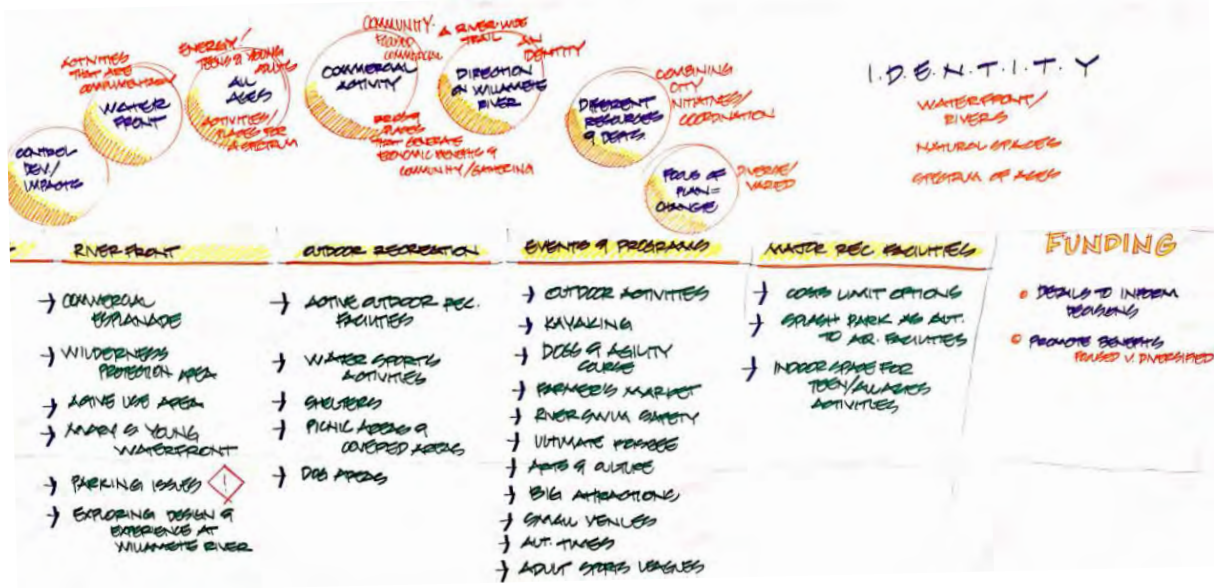 ACTIVITIES
THAT ARE
COMPLIMENTARY
WATER
FRONT
CONTROL
DEV./
IMPACTS
ENERGY/
TEENS & YOUNG
ADULTS
ALL
AGES
ACTIVITIES/
PLACES FOR
A SPECTRUM
COMMUNITY-
FOCUSED
COMMERCIAL
COMMERCIAL
ACTIVITY
AREAS &
PLACES
THAT GENERATE
ECONOMIC BENEFITS &
COMMUNITY/GATHERING
A RIVER-WIDE
TRAIL
AN
IDENTITY
DIRECTION
ON WILLAMETTE
RIVER
DIFFERENT
RESOURCES
& DEPTS.
COMBINING
CITY
INITIATIVES/
COORDINATION
FOCUS OF
PLAN =
CHANGE
DIVERSE/
VARIED
I.D.E.N.T.I.T.Y
WATERFRONT/
RIVERS
NATURAL SPACES
SPECTRUM OF AGES
RIVERFRONT
→ COMMERCIAL
ESPLANADE
→ WILDERNESS
PROTECTION AREA
→ ACTIVE USE AREA
→ MARY S YOUNG
WATERFRONT
→ PARKING ISSUES !
→ EXPLORING DESIGN &
EXPERIENCE AT
WILLAMETTE RIVER
OUTDOOR RECREATION
→ ACTIVE OUTDOOR REC.
FACILITIES
→ WATER SPORTS
ACTIVITIES
→ SHELTERS
→ PICNIC AREAS &
COVERED AREAS
→ DOG AREAS
EVENTS & PROGRAMS
→ OUTDOOR ACTIVITIES
→ KAYAKING
→ DOGS & AGILITY
COURSE
→ FARMER'S MARKET
→ RIVER SWIM SAFETY
→ ULTIMATE FRISBEE
→ ARTS & CULTURE
→ BIG ATTRACTIONS
→ SMALL VENUES
→ ALT. TIMES
→ ADULT SPORTS LEAGUES
MAJOR REC. FACILITIES
→ COSTS LIMIT OPTIONS
→ SPLASH PARK AS ALT.
TO AQ. FACILITIES
→ INDOOR SPACE FOR
TEEN/ALL AGES
ACTIVITIES
FUNDING
DETAILS TO INFORM
DECISIONS
PROMOTE BENEFITS
FOCUSED V. DIVERSIFIED